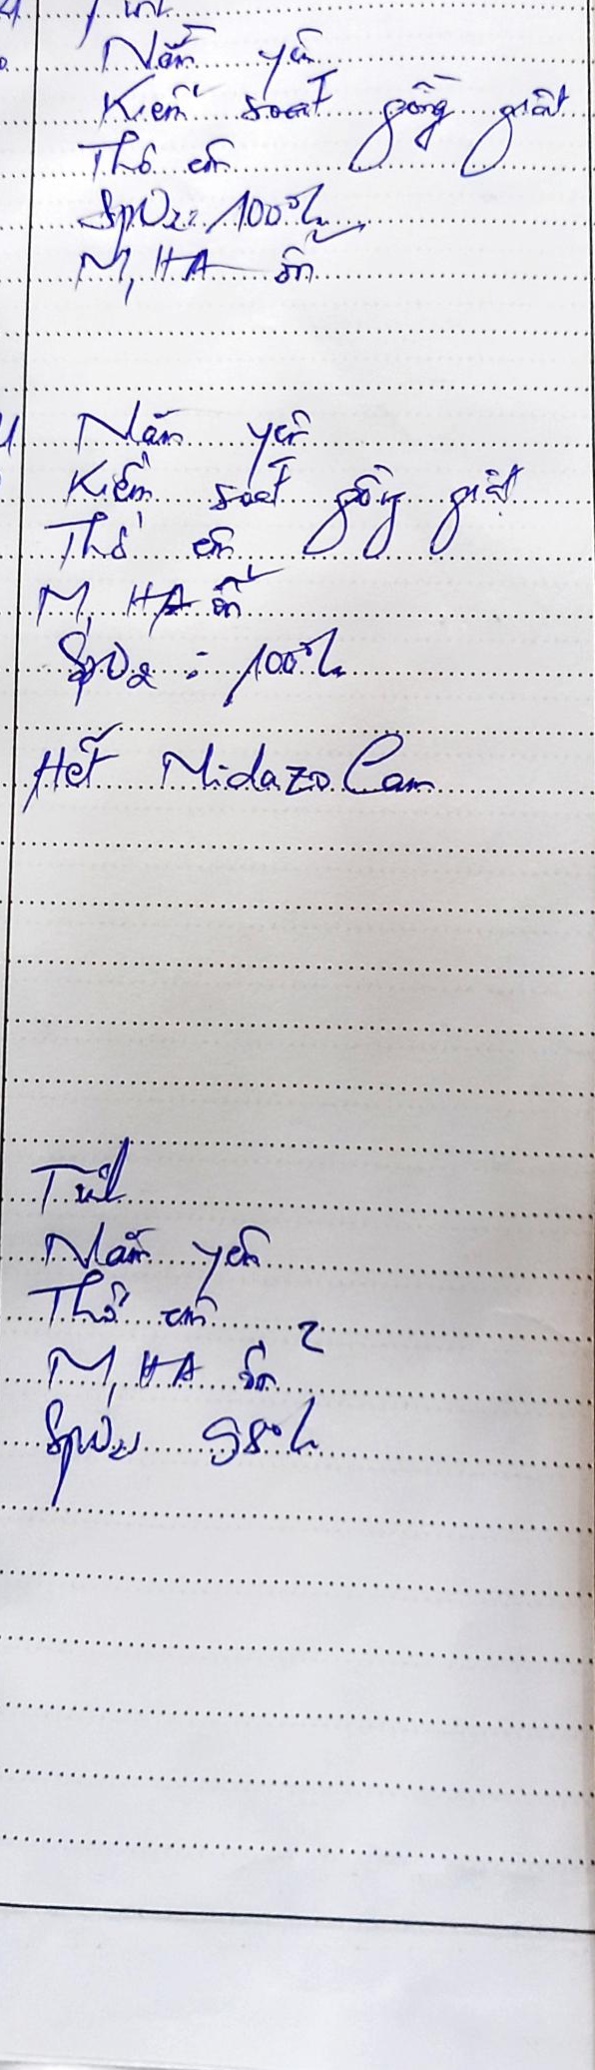 Nằm yên
Kiểm soát gồng giật
Thở êm
SpO2: 100%
M, HA ổn
Nằm yên
Kiểm soát gồng giật
Thở êm
M, HA ổn
SpO2 : 100%
Hết Midazolam
Tỉnh
Nằm yên
Thở êm
M, HA ổn
SpO2 98%